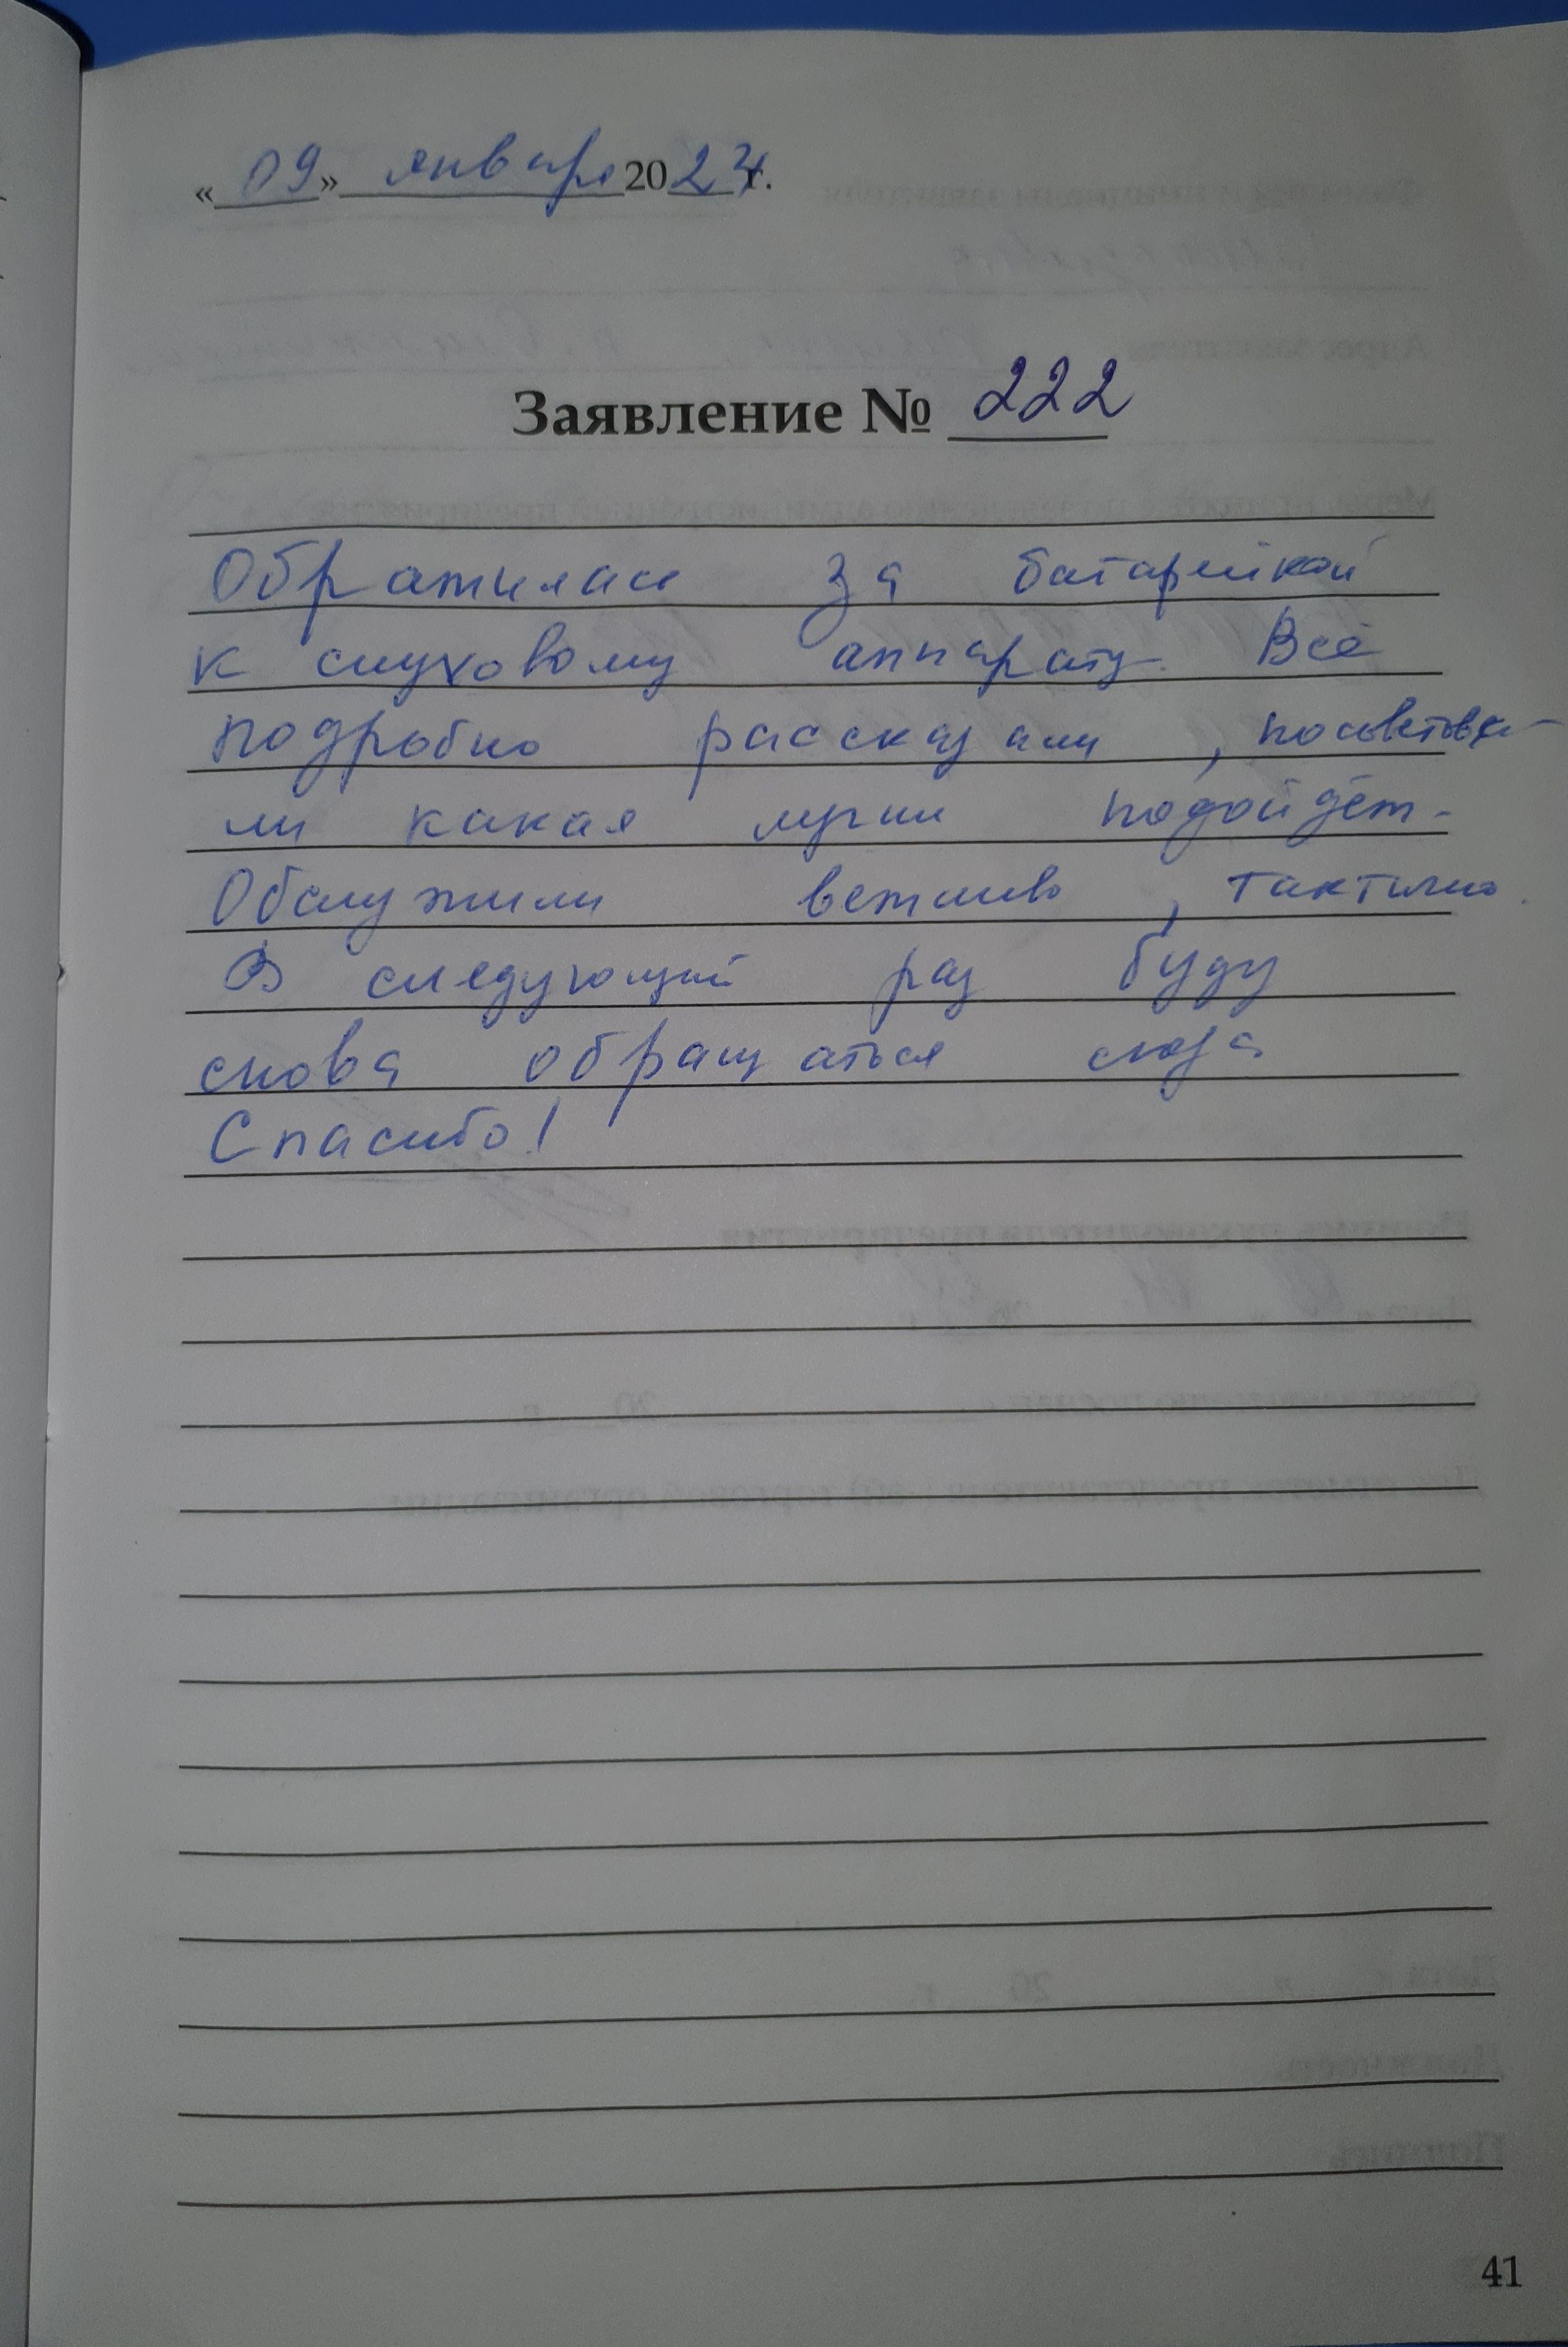 « 09 » января 2024 г.
Заявление № 222
Обратилась за батарейкой
к слуховому аппарату. Всё
подробно рассказали, посоветова-
ли какая лучше подойдёт.
Обслужили вежливо, тактично.
В следующий раз буду
снова обращаться сюда
Спасибо!
41